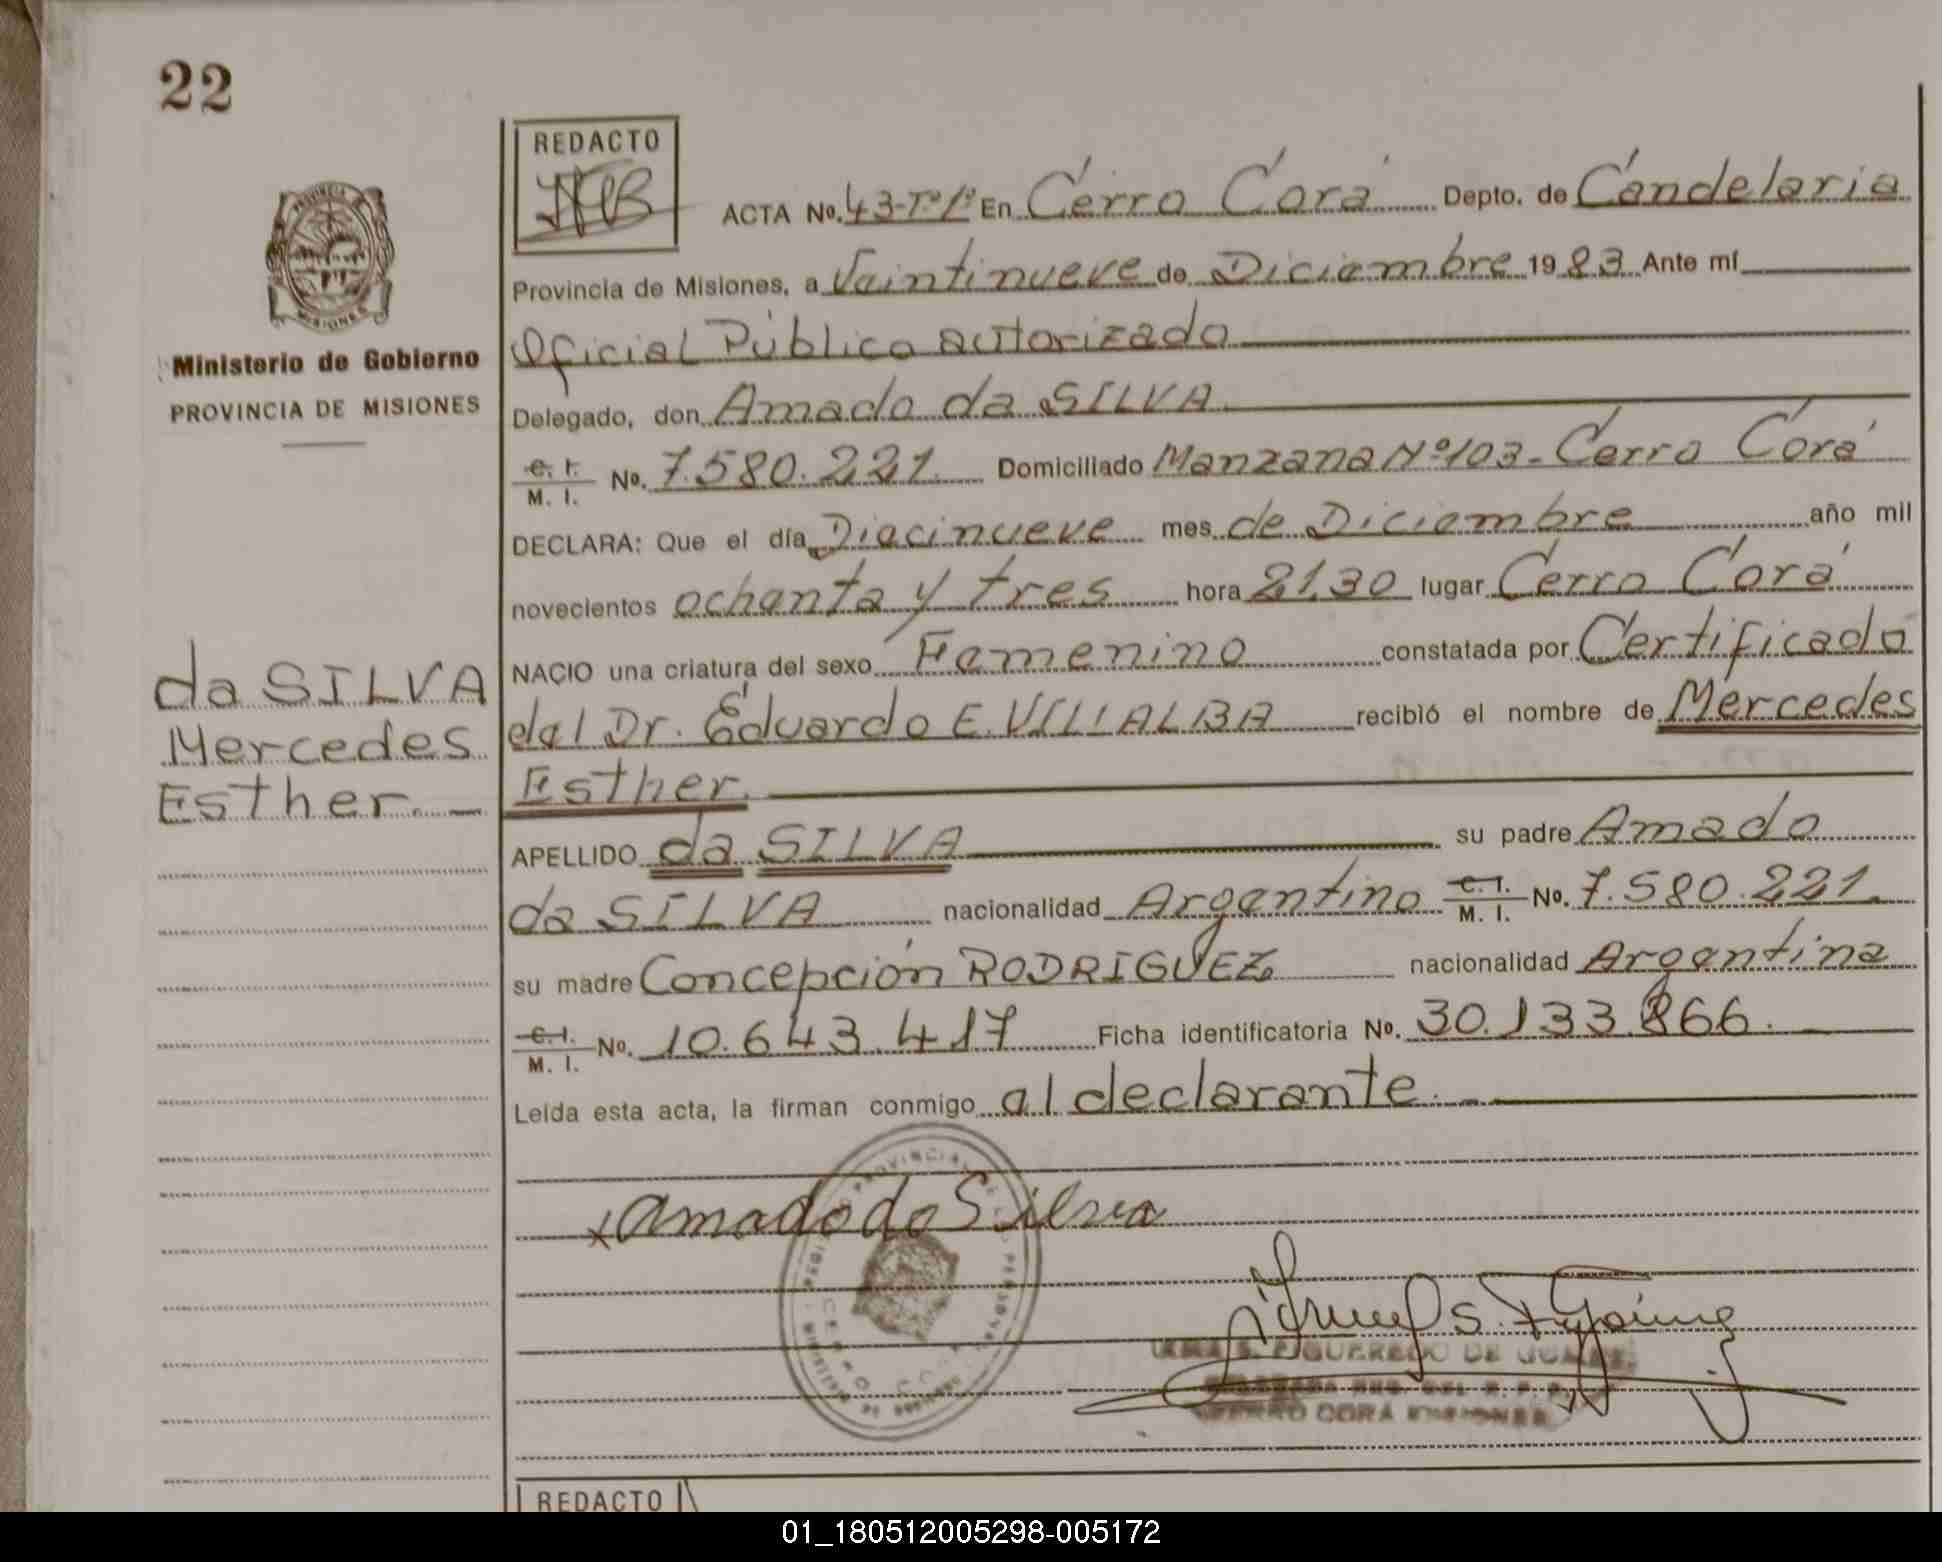 22
REDACTO
ACTA No. 43-Tº1º En Cerro Corá Depto. de Candelaria
Provincia de Misiones, a Veintinueve de Diciembre 1983 Ante mí
Oficial Público autorizado
Delegado, don Amado da SILVA
C. I. M. I. No. 7.580.221. Domiciliado Manzana Nº 103- Cerro Corá
DECLARA: Que el día Diecinueve mes de Diciembre año mil
novecientos ochenta y tres hora 21,30 lugar Cerro Corá
NACIO una criatura del sexo Femenino constatada por Certificado
del Dr. Eduardo E. VILLALBA recibió el nombre de Mercedes
Esther.
APELLIDO da SILVA su padre Amado
da SILVA nacionalidad Argentino C. I. M. I. No. 7.580.221.
su madre Concepción RODRIGUEZ nacionalidad Argentina
C. I. M. I. No. 10.643.417 Ficha identificatoria No. 30.133.866.
Leída esta acta, la firman conmigo el declarante.
PROVINCIA DE MISIONES
Ministerio de Gobierno
PROVINCIA DE MISIONES
da SILVA
Mercedes
Esther.-
x Amado da Silva
CERRO CORA MISIONES
REDACTO
01_180512005298-005172